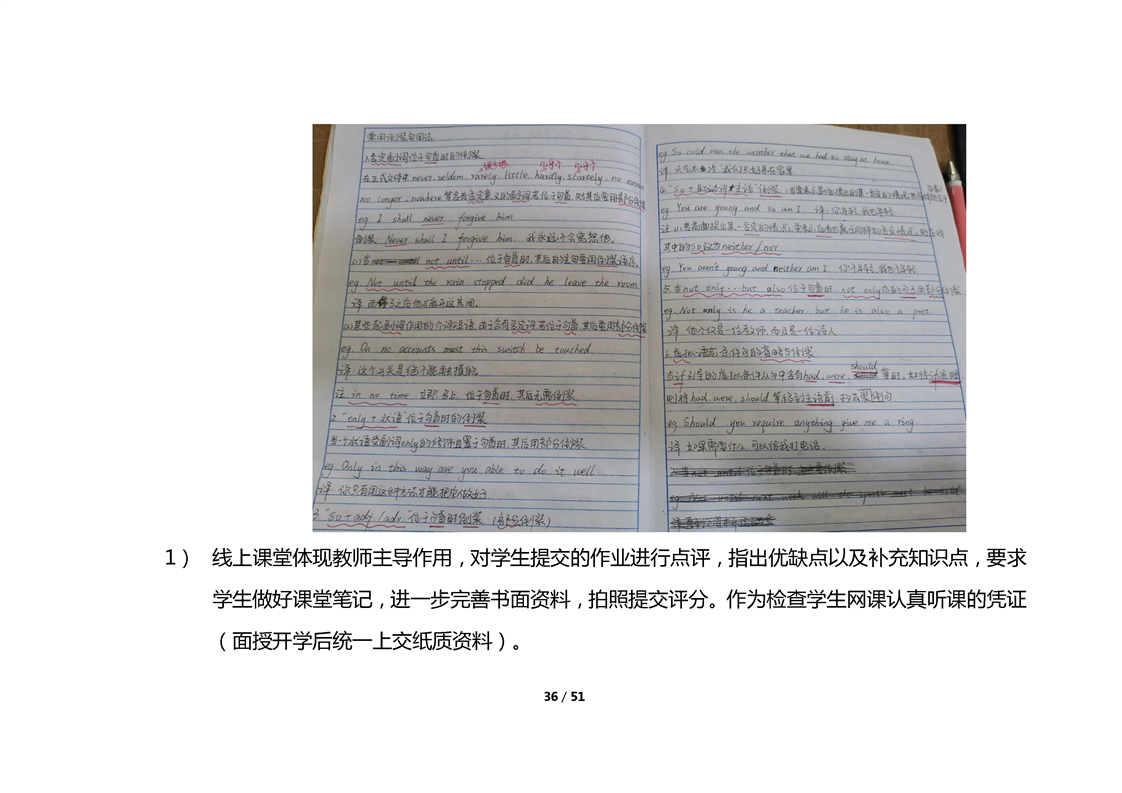 常用倒装句用法
1.否定副词位于句首时的倒装
在正式文体中never, seldom, rarely, little, hardly, scarcely, no sooner
no longer, nowhere 等含有否定意义的副词若位于句首,则其后要用部分倒装
eg I shall never forgive him
倒装: Never shall I forgive him. 我永远不会宽恕他。
(1)当not until not until… 位于句首时,其后的主句要用倒装语序。
eg. Not until the rain stopped did he leave the room.
译 雨停了之后他才离开这房间。
(2)某些起副词作用的介词短语,由于含有否定词,若位于句首,其后要用部分倒装
eg. On no accounts must this switch be touched.
译:这个开关是绝不能触摸的。
注 in no time 立即,马上. 位于句首时,其后无需倒装
2. "only + 状语" 位于句首时的倒装
当一个状语受副词only的修饰且置于句首时,其后用部分倒装
eg. Only in this way are you able to do it well
译 你只有用这种方法才能把它做好
3 "so + adj / adv." 位于句首时倒装 (部分倒装)
eg. So cold was the weather that we had to stay at home
译 天气太冷 我们只好待在家里
4. "So + 助动词+主语" 倒装
eg. You are young and so am I 译: 你年轻,我也年轻
其中的so改为neither / nor
eg. You aren't young and neither am I 你不年轻,我也不年轻
5. 当not only…but also 位于句首时 not only后的句子用部分倒装
eg. Not only is he a teacher, but he is also a poet.
译 他不仅是一位教师,而且是一位诗人
6. 虚拟语气条件句的省略与倒装
should
当if引导的虚拟条件从句中含有had, were, should 等时, 如将if省略
则将had, were, should 等移到主语前, 构成倒装句.
eg. Should you require anything give me a ring
译 如果需要什么,可以给我打电话.
1) 线上课堂体现教师主导作用，对学生提交的作业进行点评，指出优缺点以及补充知识点，要求
学生做好课堂笔记，进一步完善书面资料，拍照提交评分。作为检查学生网课认真听课的凭证
（面授开学后统一上交纸质资料）。
36 / 51